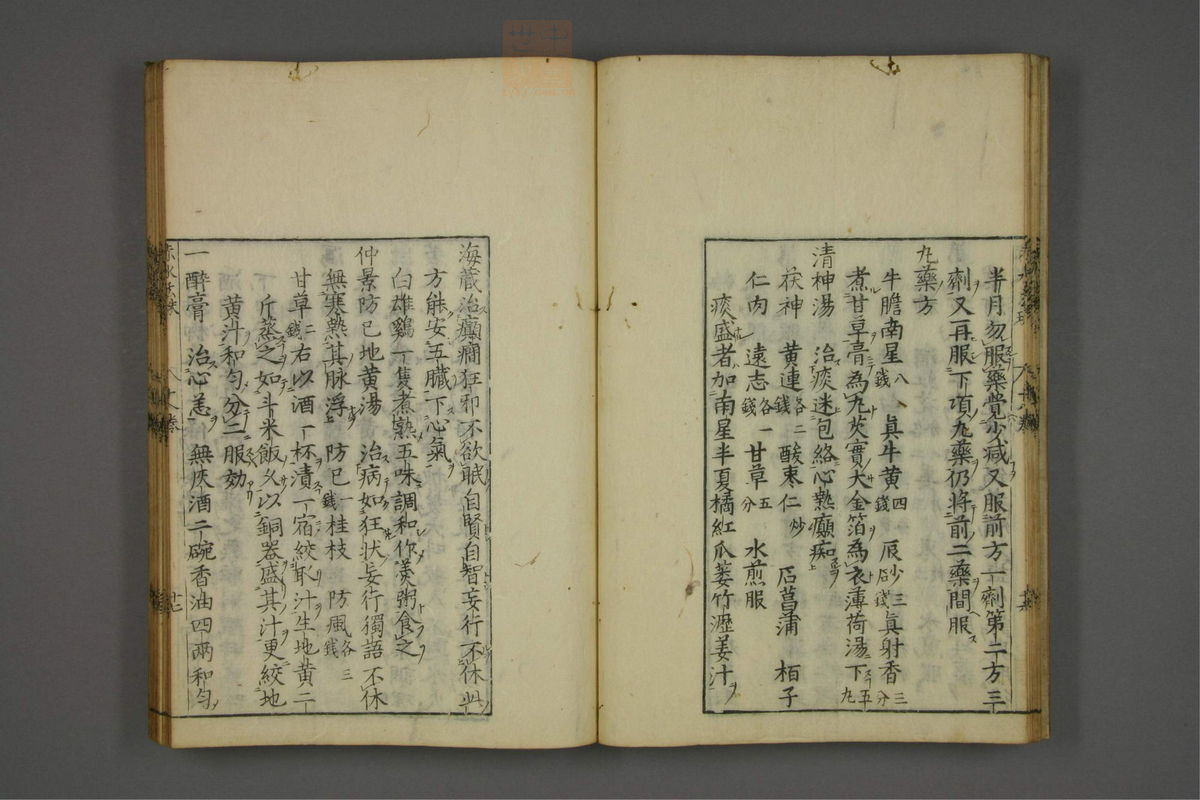 半月勿服藥覺少減又服前方一劑第二方三
劑又再服下項丸藥仍將前二藥間服
丸藥方
牛膽南星八錢 真牛黃四錢 辰砂三錢 真射香三分
煮甘草膏為丸芡實大金箔為衣薄荷湯下五丸
清神湯 治痰迷包絡心熱癲痴
茯神 黃連各二錢 酸棗仁炒 石菖蒲 栢子
仁肉 遠志各一錢 甘草五分 水煎服
痰盛者加南星半夏橘紅瓜蔞竹瀝姜汁
海藏治癲癇狂邪不欲眠自賢自智妄行不休此
方能安五臟下心氣
白雄鷄一隻煮熟五味調和作羹粥食之
仲景防已地黃湯 治病如狂狀妄行獨語不休
無寒熱其脉浮 防已一錢 桂枝 防風各三錢
甘草二錢 右以酒一杯漬一宿絞取汁生地黃二
斤蒸之如斗米飯久以銅器盛其汁更絞地
黃汁和勻分二服効
一醉膏 治心恙 無灰酒二碗香油四兩和勻